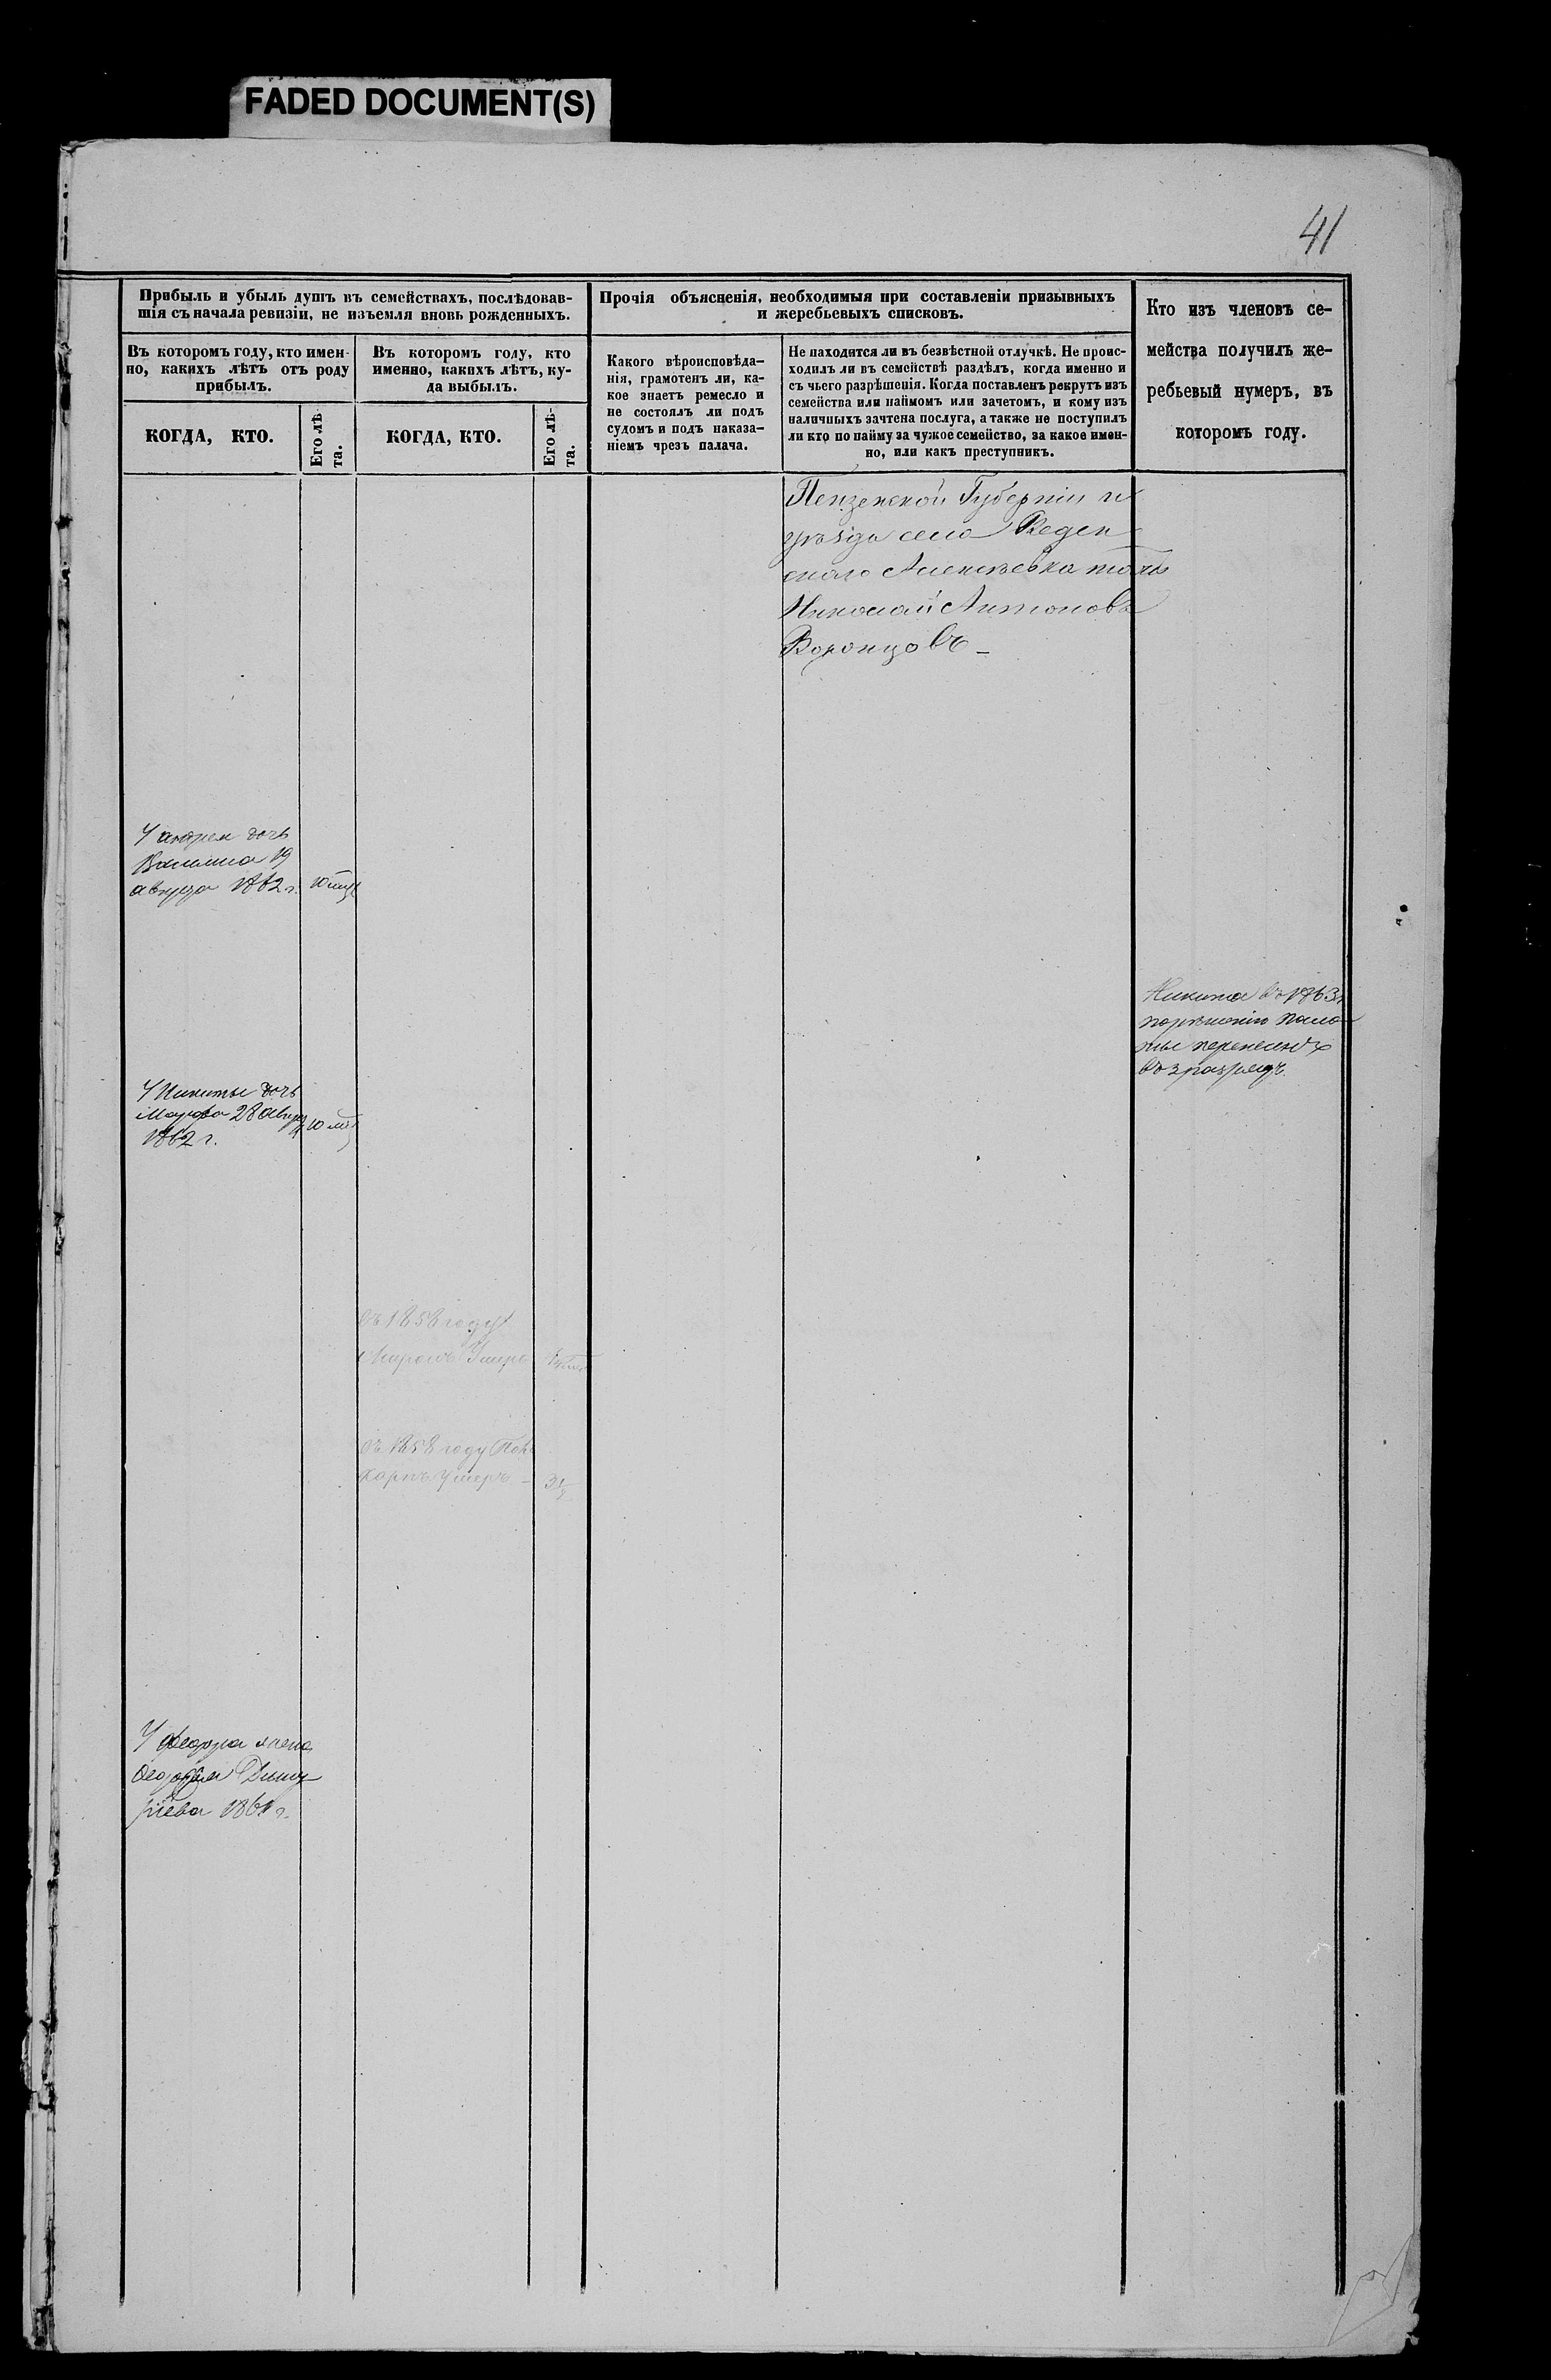 FADED DOCUMENT(S)
41
Прибыль и убыль душъ въ семействахъ, послѣдовав-
шія съ начала ревизіи, не изъемля вновь рожденныхъ.
Въ которомъ году, кто имен-
но, какихъ лѣтъ отъ роду
прибылъ.
КОГДА, КТО.
Его лѣ-
та.
Въ которомъ году, кто
именно, какихъ лѣтъ, ку-
да выбылъ.
КОГДА, КТО.
Его лѣ-
та.
Прочія объясненія, необходимыя при составленіи призывныхъ
и жеребьевыхъ списковъ.
Какого вѣроисповѣда-
нія, грамотенъ ли, ка-
кое знаетъ ремесло и
не состоялъ ли подъ
судомъ и подъ наказа-
ніемъ чрезъ палача.
Не находится ли въ безвѣстной отлучкѣ. Не проис-
ходилъ ли въ семействѣ раздѣлъ, когда именно и
съ чьего разрѣшенія. Когда поставленъ рекрутъ изъ
семейства или наймомъ или зачетомъ, и кому изъ
наличныхъ зачтена послуга, а также не поступилъ
ли кто по найму за чужое семейство, за какое имен-
но, или какъ преступникъ.
Кто изъ членовъ се-
мейства получилъ же-
ребьевый нумеръ, въ
которомъ году.
Пензенской Губерніи и
уѣзда села
Николай Антоновъ
Воронцовъ -
У андрея дочь
19
августа 1862 г. 10
Никита въ 1863 г
по рѣшенію пала
ты перенесенъ
въ 3 разрядъ.
У Никиты дочь
Марфа 28
1862 г.
въ 1858 году
Миронъ Умеръ
въ 1858 году
Карпъ умеръ - 3½
У Федора жена
1861 г.